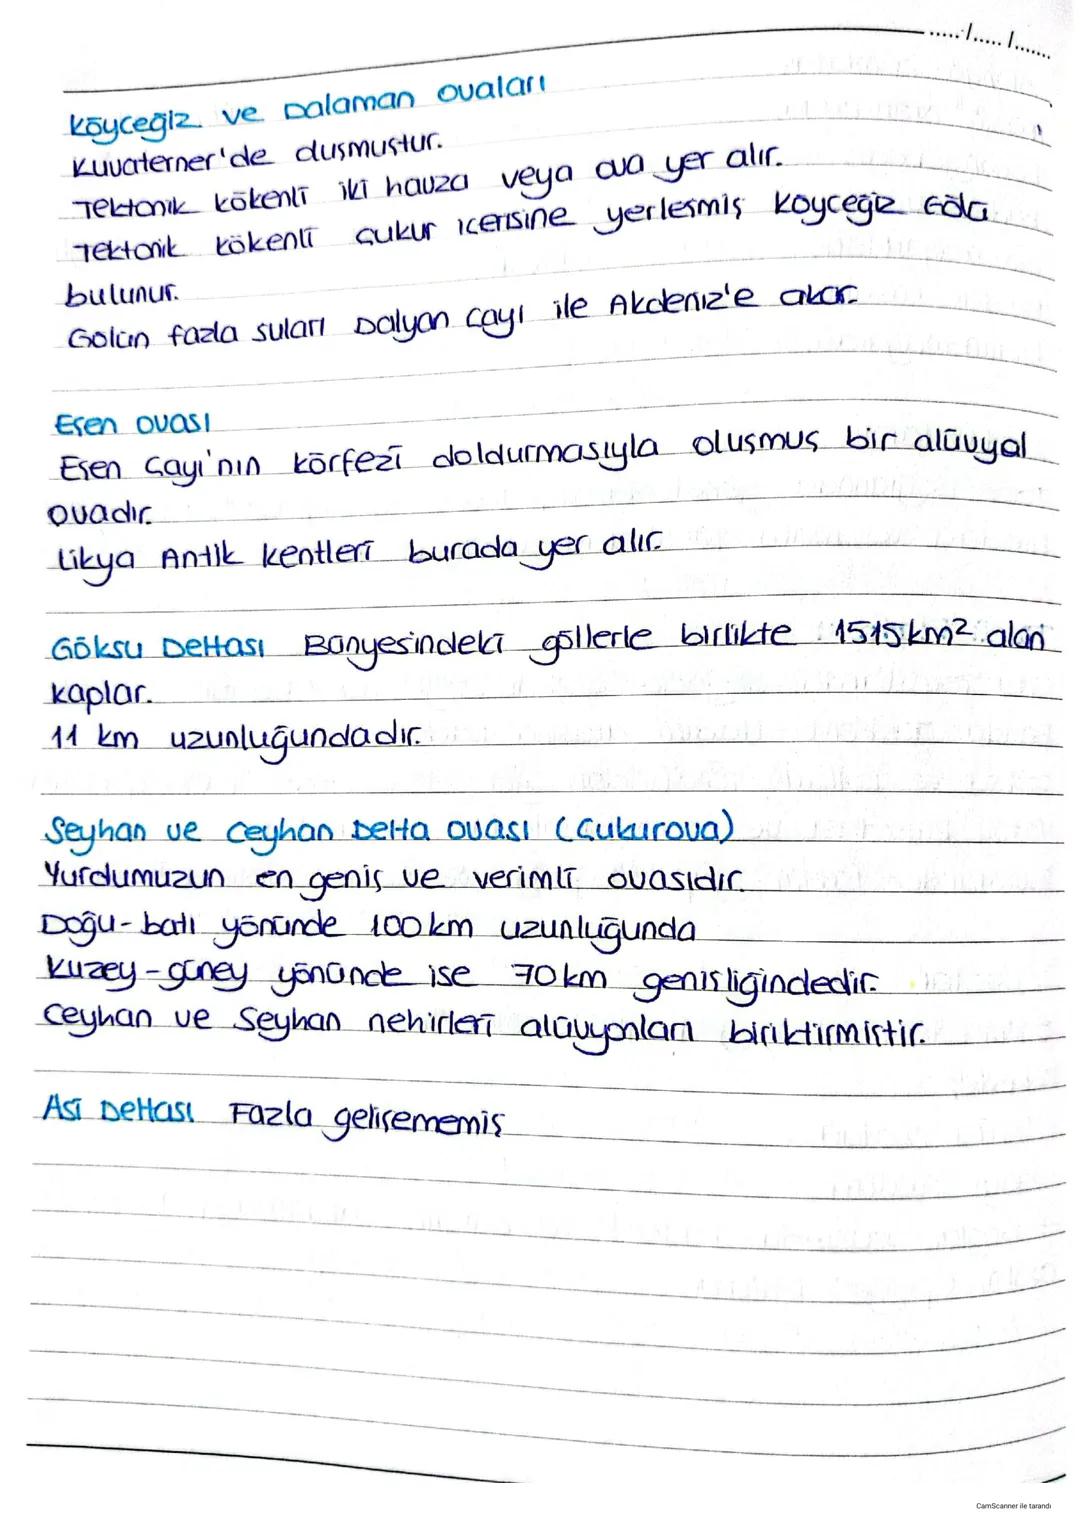 ...../...../.......
Köyceğiz ve Dalaman ovaları
Kuvaterner'de dusmustur.
Tektonik kökenli iki havza veya ova yer alır.
Tektonik kökenli çukur icerisine yerlesmiş Köyceğiz Gölü
bulunur.
Gölün fazla suları Dalyan Çayı ile Akdeniz'e akar.
Eşen ovası
Eşen Çayı'nın körfezi doldurmasıyla oluşmuş bir alüvyal
ovadır.
Likya Antik kentleri burada yer alır.
Göksu Deltası Bünyesindeki göllerle birlikte 1515 km² alan
kaplar.
11 km uzunluğundadır.
Seyhan ve Ceyhan Delta ovası (Çukurova)
Yurdumuzun en geniş ve verimli ovasıdır.
Doğu-batı yönünde 100 km uzunluğunda
Kuzey-güney yönünde ise 70 km genişliğindedir.
Ceyhan ve Seyhan nehirleri alüvyonları biriktirmiştir.
Asi Deltası Fazla gelişememiş
CamScanner ile tarandı